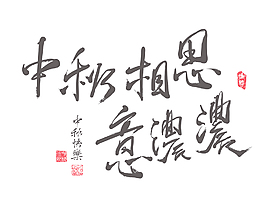 中秋相思
意濃濃
中秋快樂